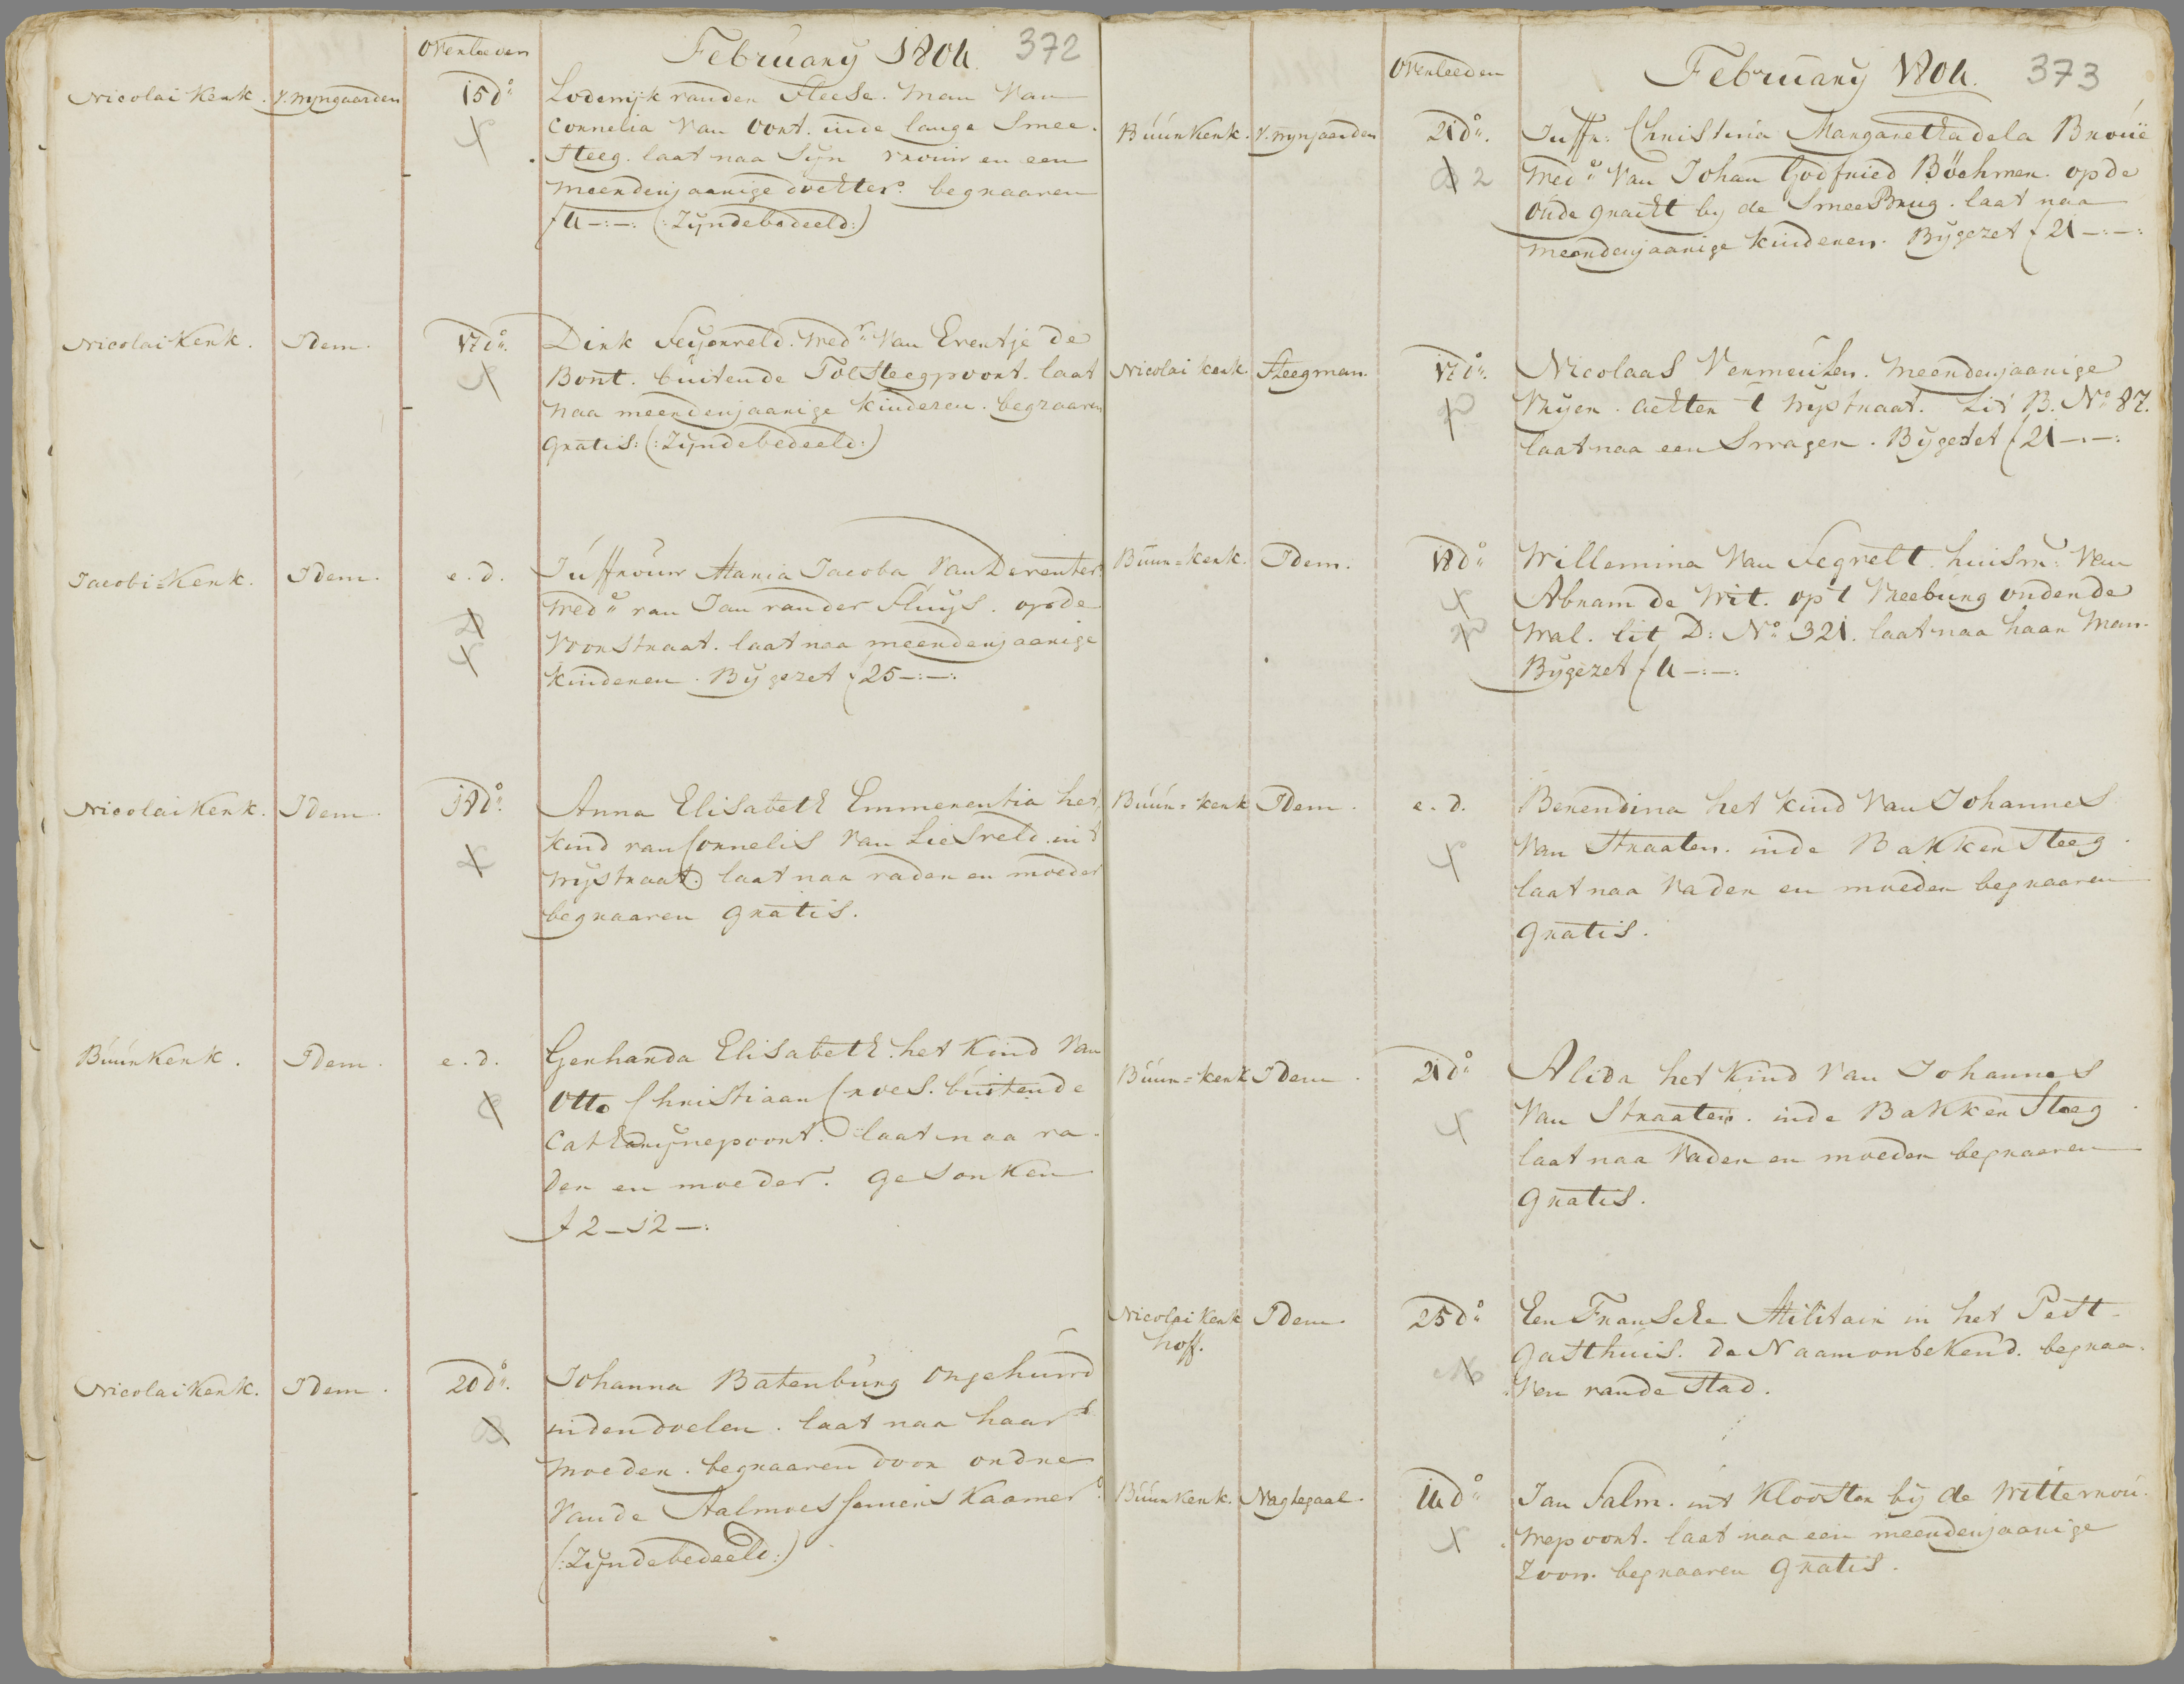 Overleeden
February 1804. 372
Nicolai Kerk. V. Wyngaarden 15 do. Lodewijk van der Fleese. Man van
Cornelia van Oort. in de lange Smee-
steeg. laat naa Syn vrouw en een
meerderjaarige dochter. begraaven
f 4-:-: (: Zynde bedeeld:)
Nicolai Kerk. Idem. 17 do. Dirk Feyenveld. Wedr van Evertje de
Bont. buiten de Tolsteegpoort. laat
naa meerderjaarige kinderen. begraaven
gratis: (: Zynde bedeeld:)
Jacobi=Kerk. Idem. e. d. Juffrouw Maria Jacoba van Deventer
Wede van Jan van der Sluys. op de
Voorstraat. laat naa meerderjaarige
kinderen. Bygezet f 25-:-:
Nicolai Kerk. Idem. 18 do. Anna Elisabeth Emmerentia het
kind van Cornelis van Liesveld. in 't
wystraat. laat naa vader en moeder
begraaven gratis.
Buurkerk. Idem. e. d. Gerharda Elisabeth. het kind van
Otto Christiaan Croes. buiten de
Catharynepoort. laat naa va-
der en moeder. gesonken
f 2-12-:
Nicolai Kerk. Idem. 20 do. Johanna Batenburg ongehuwd
in den doelen. laat naa haar
moeder. begraaven door ordre
van de Aalmoesseniers Kaamer
(: Zynde bedeeld:)
Overleeden
February 1804. 373
Buurkerk. V. Wyngaarden 21 do. Juffr: Christina Margaretha de la Brouë
2 Wede van Johan Godfried Böehmer. op de
oude gracht by de Smeebrug. laat naa
meerderjaarige kinderen. Bygezet f 21-:-:
Nicolai kerk Steegman. 17 do. Nicolaas Vermeulen. meerderjaarige
Vryer. achter 't wystraat. Lit B. No 87.
laat naa een Swager. Bygezet f 21-:-:
Buur=kerk. Idem. 18 do. Willemina van Segvelt. huisvr: van
Abram de Wit. op 't Vreeburg onder de
Wal. lit D: No 321. laat naa haar Man.
Bygezet f 4-:-:
Buur=kerk Idem. e. d. Berendina het kind van Johannes
van Straaten. in de Bakkersteeg.
laat naa Vader en moeder begraaven
gratis.
Buur=kerk Idem. 21 do. Alida het kind van Johannes
van Straaten. in de Bakkersteeg.
laat naa Vader en moeder begraaven
gratis.
Nicolai Kerk Idem. 25 do. Een Fransche Militair in het Pest-
hoff. gasthuis. de Naam onbekend. begraa-
ven van de Stad.
Buurkerk. Nagtegaal. 14 do. Jan Salm. int Klooster bij de Wittevrou-
wepoort. laat naa een meerderjaarige
Zoon. begraaven gratis.